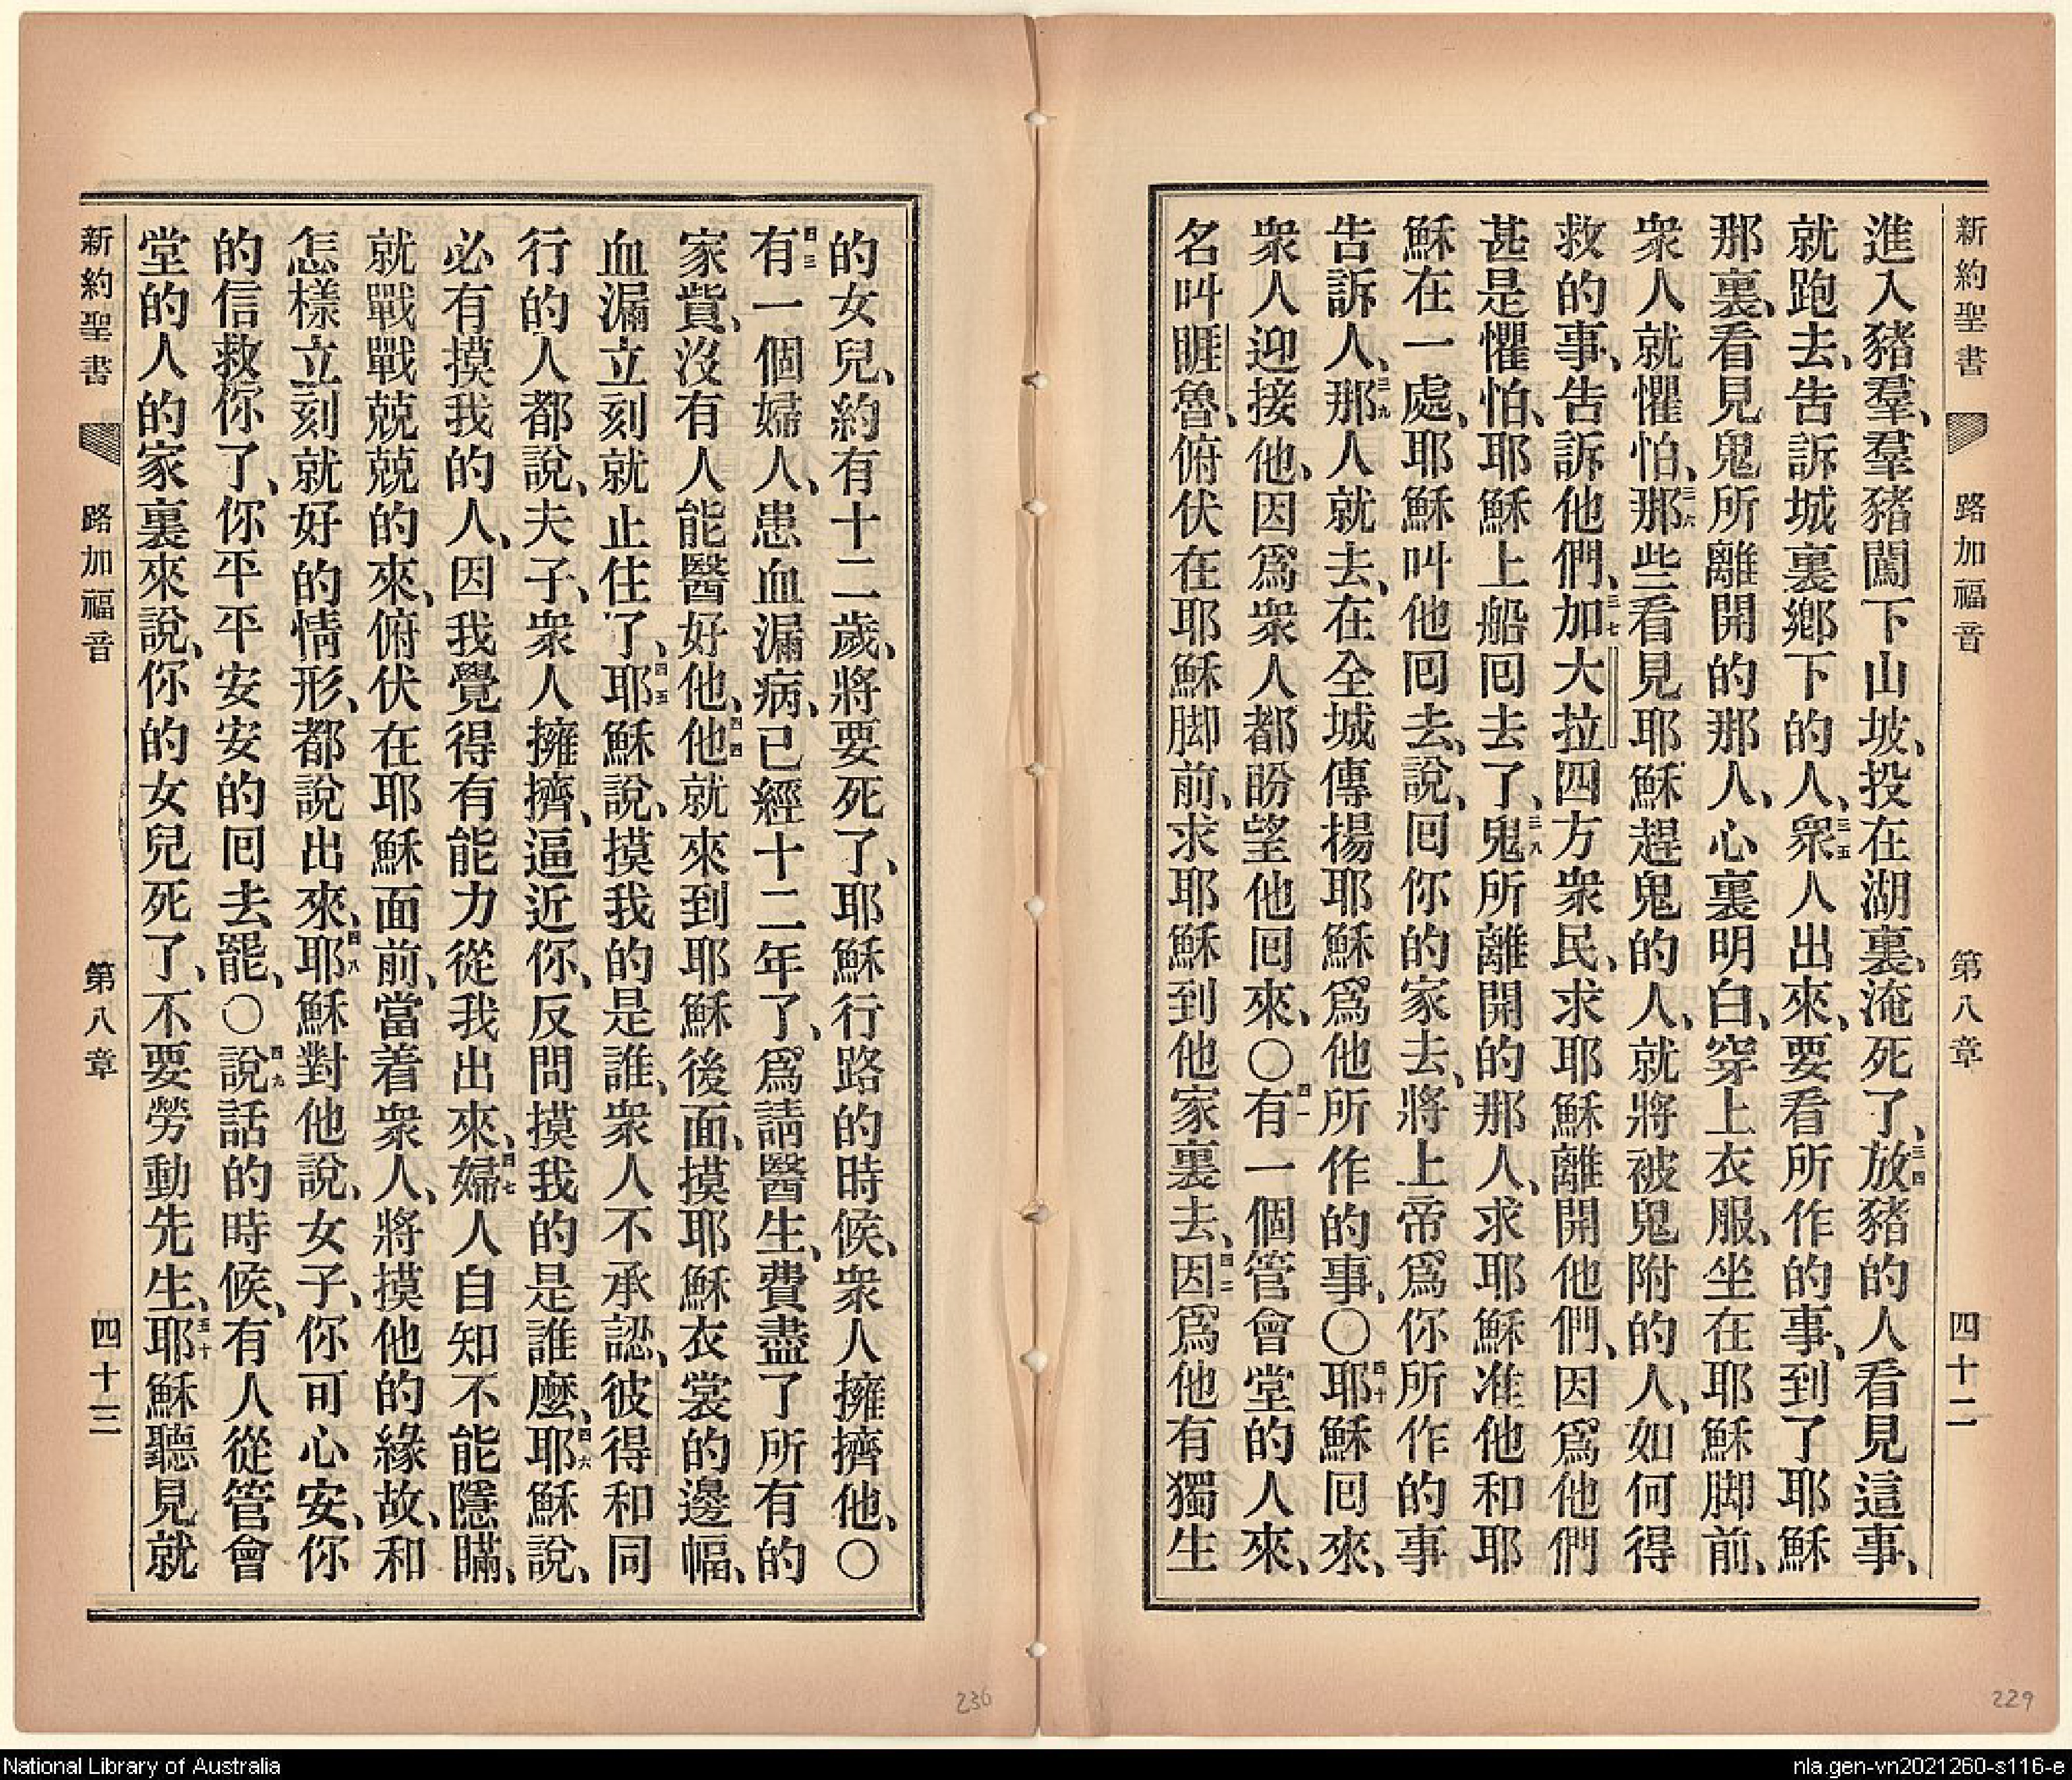 新約聖書 路加福音 第八章 四十二
進入豬羣、羣豬闖下山坡、投在湖裏、淹死了、三四放豬的人看見這事、
就跑去、告訴城裏鄉下的人、三五衆人出來、要看所作的事、到了耶穌
那裏、看見鬼所離開的那人、心裏明白、穿上衣服、坐在耶穌脚前、
衆人就懼怕、三六那些看見耶穌趕鬼的人、就將被鬼附的人、如何得
救的事、告訴他們、三七加大拉四方衆民、求耶穌離開他們、因爲他們
甚是懼怕、耶穌上船回去了、三八鬼所離開的那人、求耶穌准他和耶
穌在一處、耶穌叫他回去、說、回你的家去、將上帝爲你所作的事
告訴人、三九那人就去、在全城傳揚耶穌爲他所作的事、〇四十耶穌回來、
衆人迎接他、因爲衆人都盼望他回來、〇四一有一個管會堂的人來、
名叫睚魯、俯伏在耶穌脚前、求耶穌到他家裏去、四二因爲他有獨生
的女兒、約有十二歲、將要死了、耶穌行路的時候、衆人擁擠他、〇
四三有一個婦人、患血漏病、已經十二年了、爲請醫生、費盡了所有的
家貲、沒有人能醫好他、四四他就來到耶穌後面、摸耶穌衣裳的邊幅、
血漏立刻就止住了、四五耶穌說、摸我的是誰、衆人不承認、彼得和同
行的人都說、夫子、衆人擁擠、逼近你、反問摸我的是誰麼、四六耶穌說、
必有摸我的人、因我覺得有能力從我出來、四七婦人自知不能隱瞞、
就戰戰兢兢的來、俯伏在耶穌面前、當着衆人、將摸他的緣故、和
怎樣立刻就好的情形、都說出來、四八耶穌對他說、女子、你可心安、你
的信救你了、你平平安安的回去罷、〇四九說話的時候、有人從管會
堂的人的家裏來說、你的女兒死了、不要勞動先生、五十耶穌聽見就
新約聖書 路加福音 第八章 四十三
236
229
National Library of Australia
nla.gen-vn2021260-s116-e